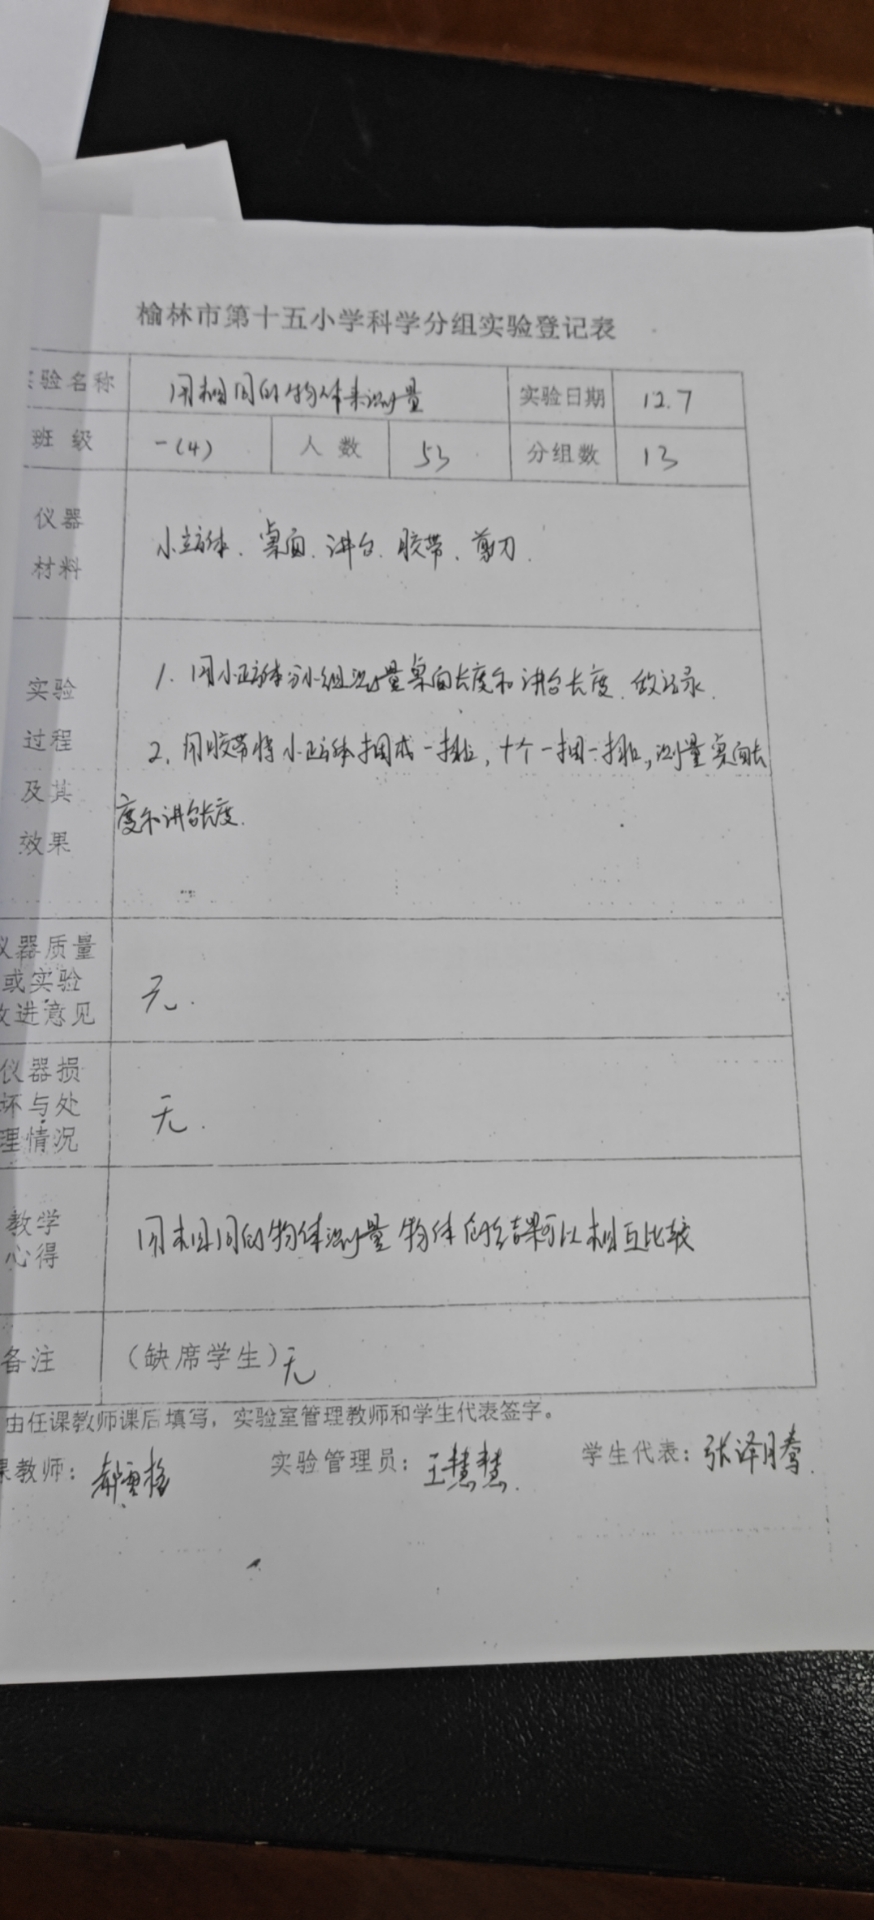 榆林市第十五小学科学分组实验登记表
实验名称 用相同的物体来测量 实验日期 12.7
班级 一(4) 人数 53 分组数 13
仪器
材料
小立方体、桌面、讲台、胶带、剪刀.
实验
过程
及其
效果
1. 用小正方体分小组测量桌面长度和讲台长度.做记录.
2. 用胶带将小正方体捆成一排,十个一捆一排,测量桌面长
度和讲台长度.
仪器质量
或实验
改进意见
无.
仪器损
坏与处
理情况
无.
教学
心得
用相同的物体测量物体的结果可以相互比较
备注 (缺席学生)无
由任课教师课后填写,实验室管理教师和学生代表签字。
课教师: 实验管理员:王慧慧. 学生代表:张泽